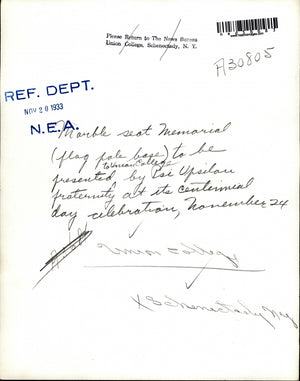 Please Return to The News Bureau
Union College, Schenectady, N. Y.
A30805
REF. DEPT.
NOV 20 1933
N.E.A.
Marble seat Memorial
(flag pole base) to be
to Union College
presented by Psi Upsilon
fraternity at its centennial
day celebration, November 24
Union College
X Schenectady NY